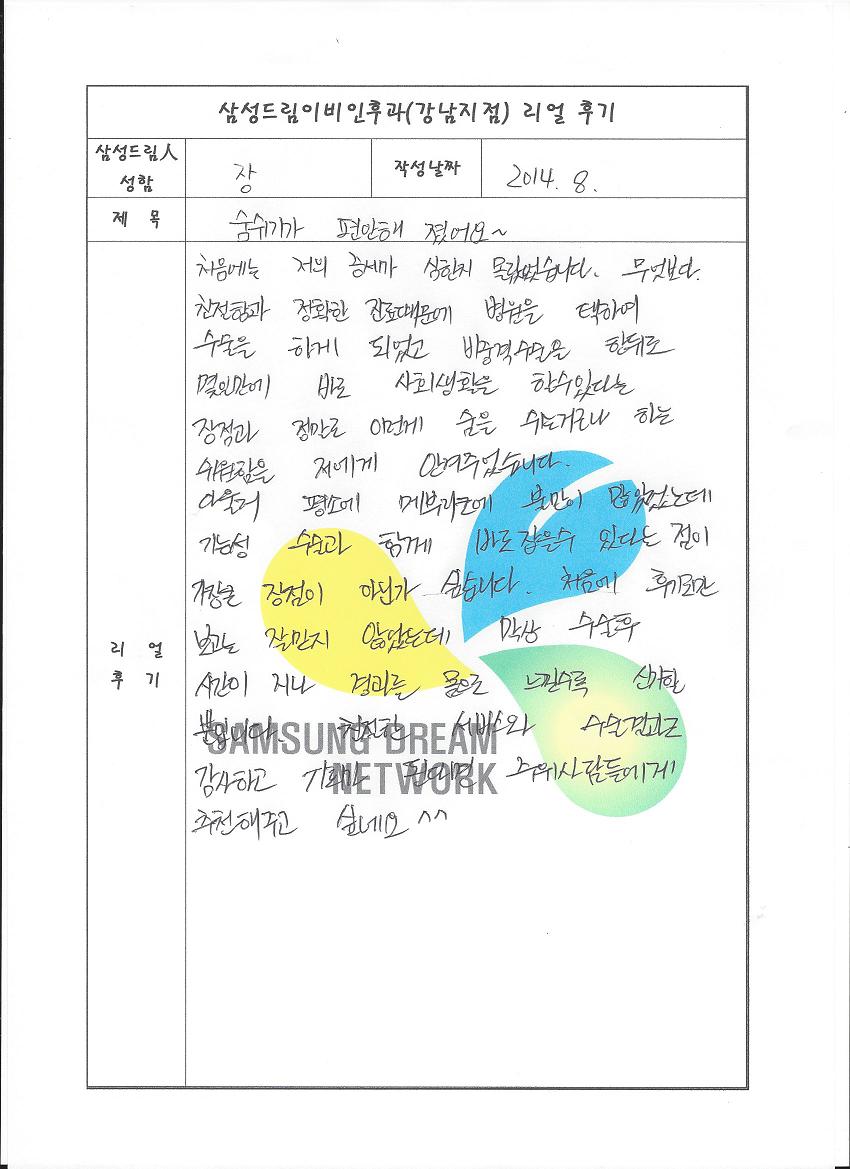 삼성드림이비인후과(강남지점) 리얼 후기
삼성드림人 성함
장
작성날짜
2014. 8.
제 목
숨쉬기가 편안해 졌어요~
리 얼 후 기
처음에는 저의 증세가 심한지 몰랐었습니다. 무엇보다.
친절함과 정확한 진료때문에 병원을 택하여
수술을 하게 되었고 비중격수술은 합뒤로
몇일만에 바로 사회생활을 할수있다는
장점과 정말로 이런게 숨을 쉬는거구나 하는
쉬원함을 저에게 안겨주었습니다.
아울러 평소에 메부리코에 불만이 많았었는데
기능성 수술과 함께 바로잡을수 있다는 점이
가장큰 장점이 아닌가 싶습니다. 처음에 후기로만
보고는 잘믿지 않았는데 막상 수술후
시간이 지나 결과를 몸으로 느낄수록 신기할
뿐입니다. 친절한 서비스와 수술결과로
감사하고 기회가 된다면 주위사람들에게
추천해주고 싶네요 ^^
SAMSUNG DREAM
NETWORK